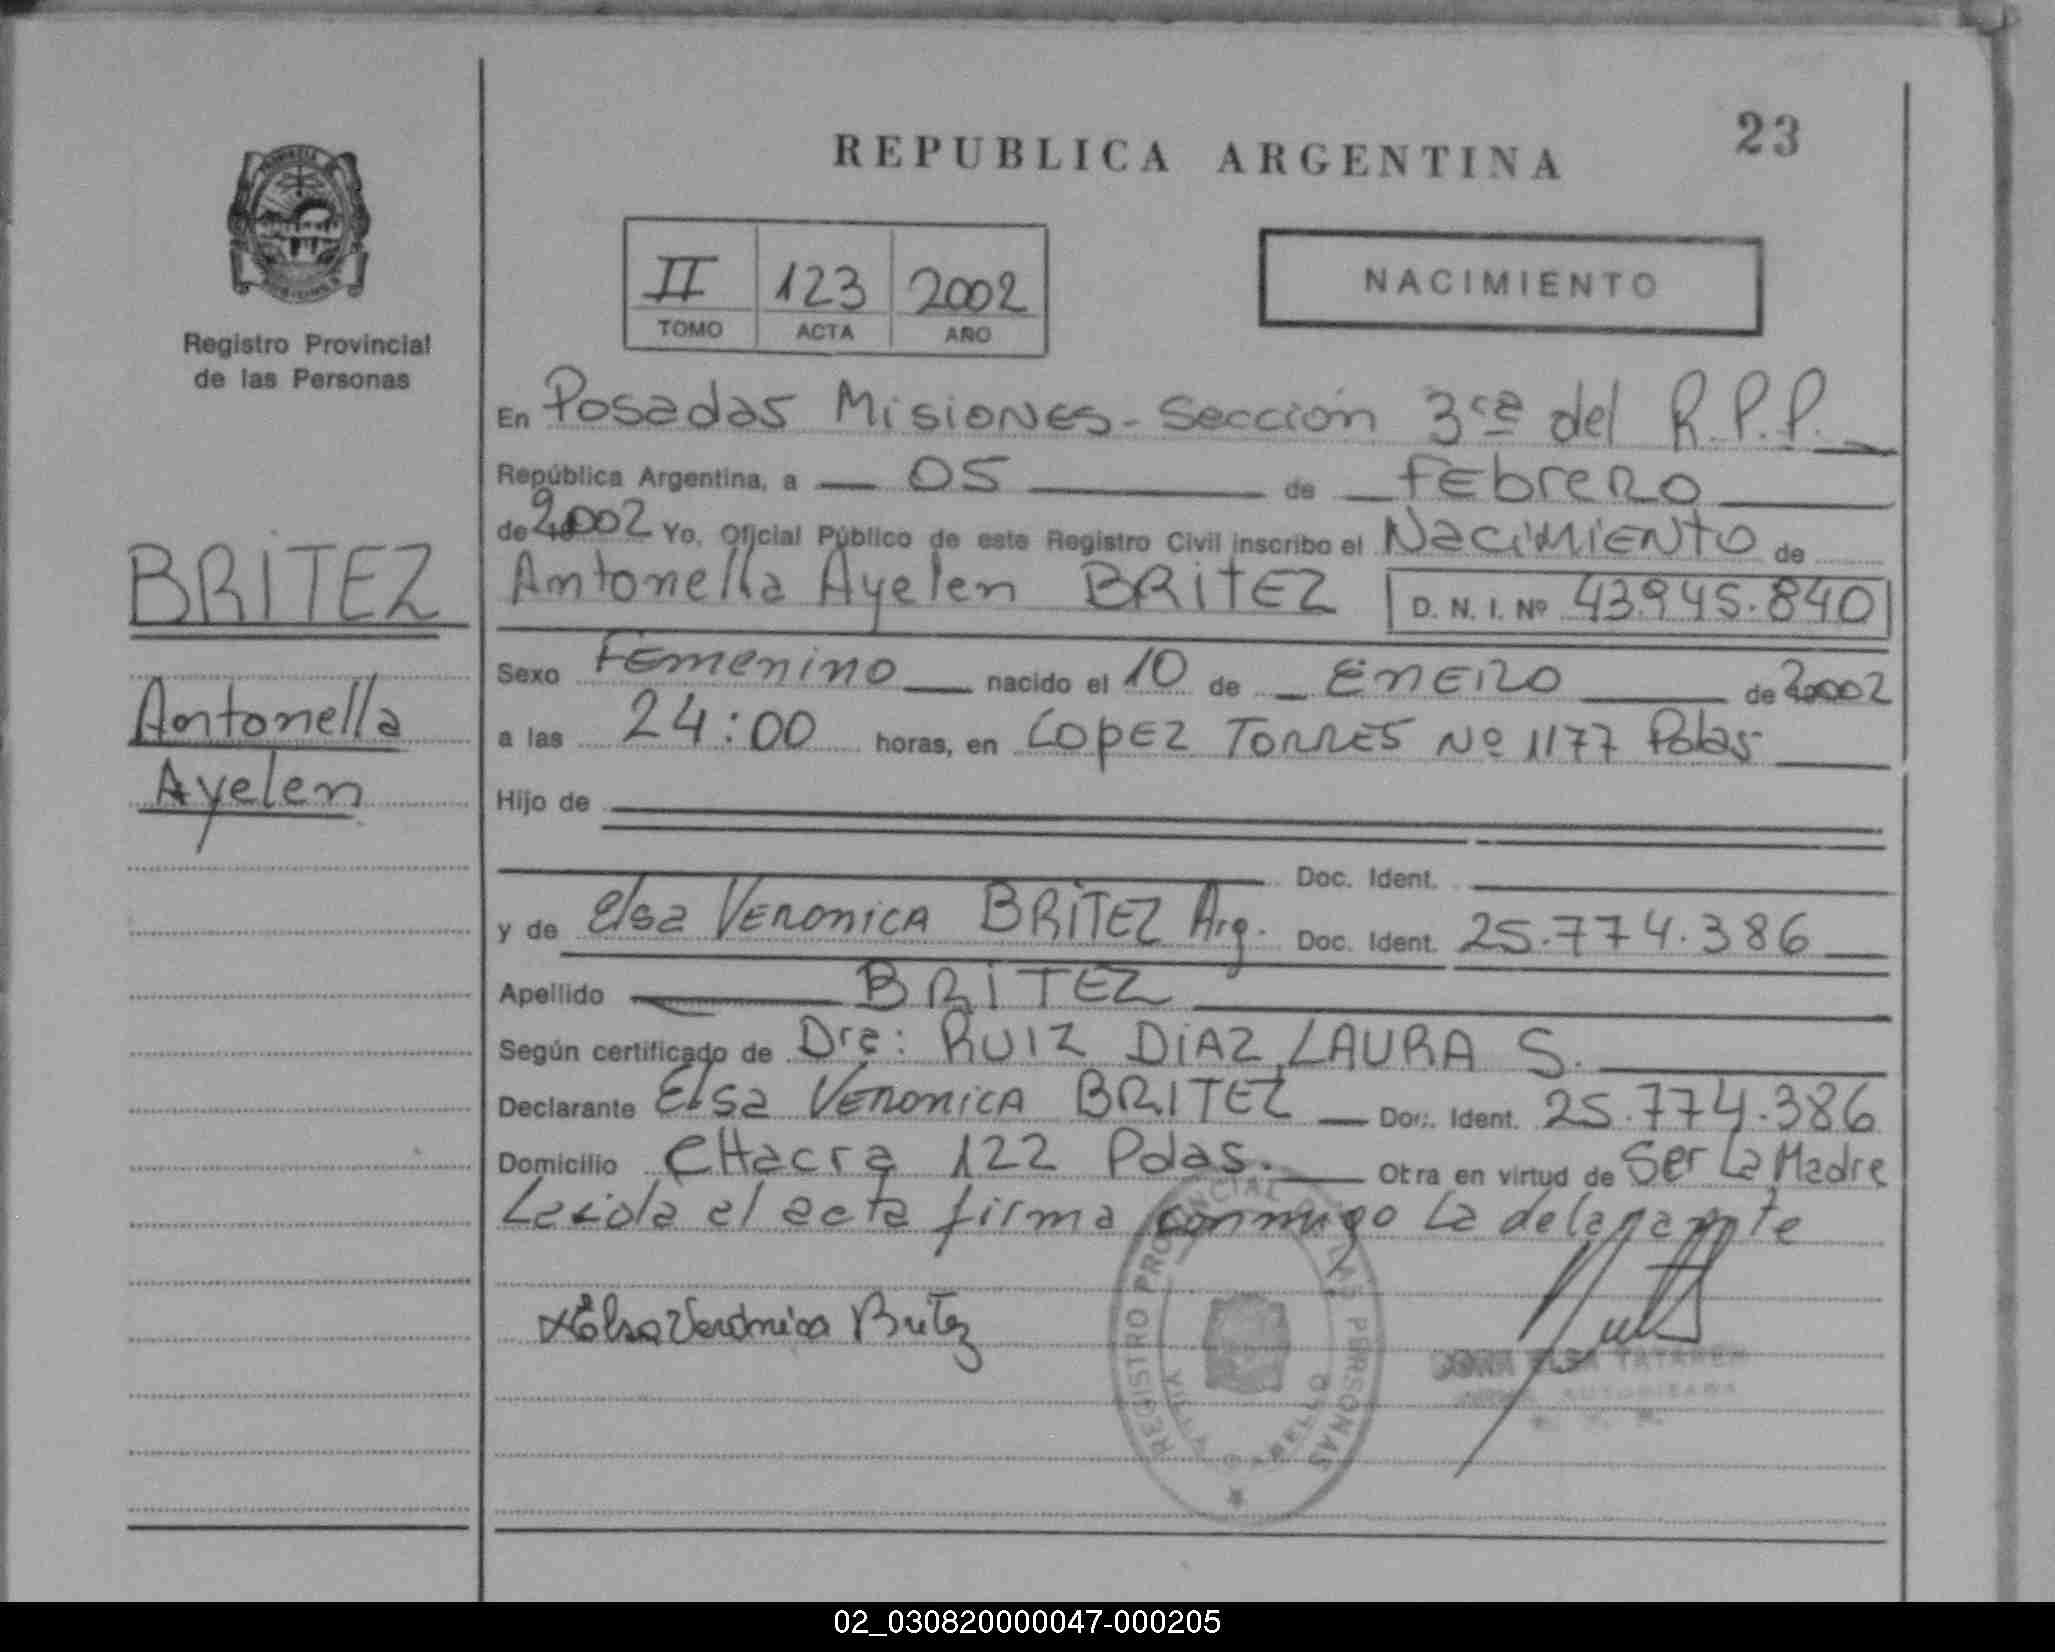 23
REPUBLICA ARGENTINA
II 123 2002
TOMO ACTA AÑO
NACIMIENTO
Registro Provincial
de las Personas
BRITEZ
Antonella
Ayelen
En Posadas Misiones - Sección 3ra del R.P.P.
República Argentina, a 05 de Febrero
de 2002 Yo, Oficial Público de este Registro Civil inscribo el Nacimiento de
Antonella Ayelen BRITEZ D. N. I. Nº 43.945.840
Sexo Femenino nacido el 10 de Enero de 2002
a las 24:00 horas, en Lopez Torres Nº 1177 Pdas
Hijo de
Doc. Ident.
y de Elsa Veronica BRITEZ Arg. Doc. Ident. 25.774.386
Apellido BRITEZ
Según certificado de Dra: RUIZ DIAZ LAURA S.
Declarante Elsa Veronica BRITEZ Doc. Ident. 25.774.386
Domicilio CHacra 122 Pdas. Otra en virtud de Ser La Madre
Leída el acta firma conmigo La
Elsa Veronica Britez
REGISTRO PROVINCIAL DE LAS PERSONAS
VILLA CABELLO
AUTORIZADA
02_030820000047-000205